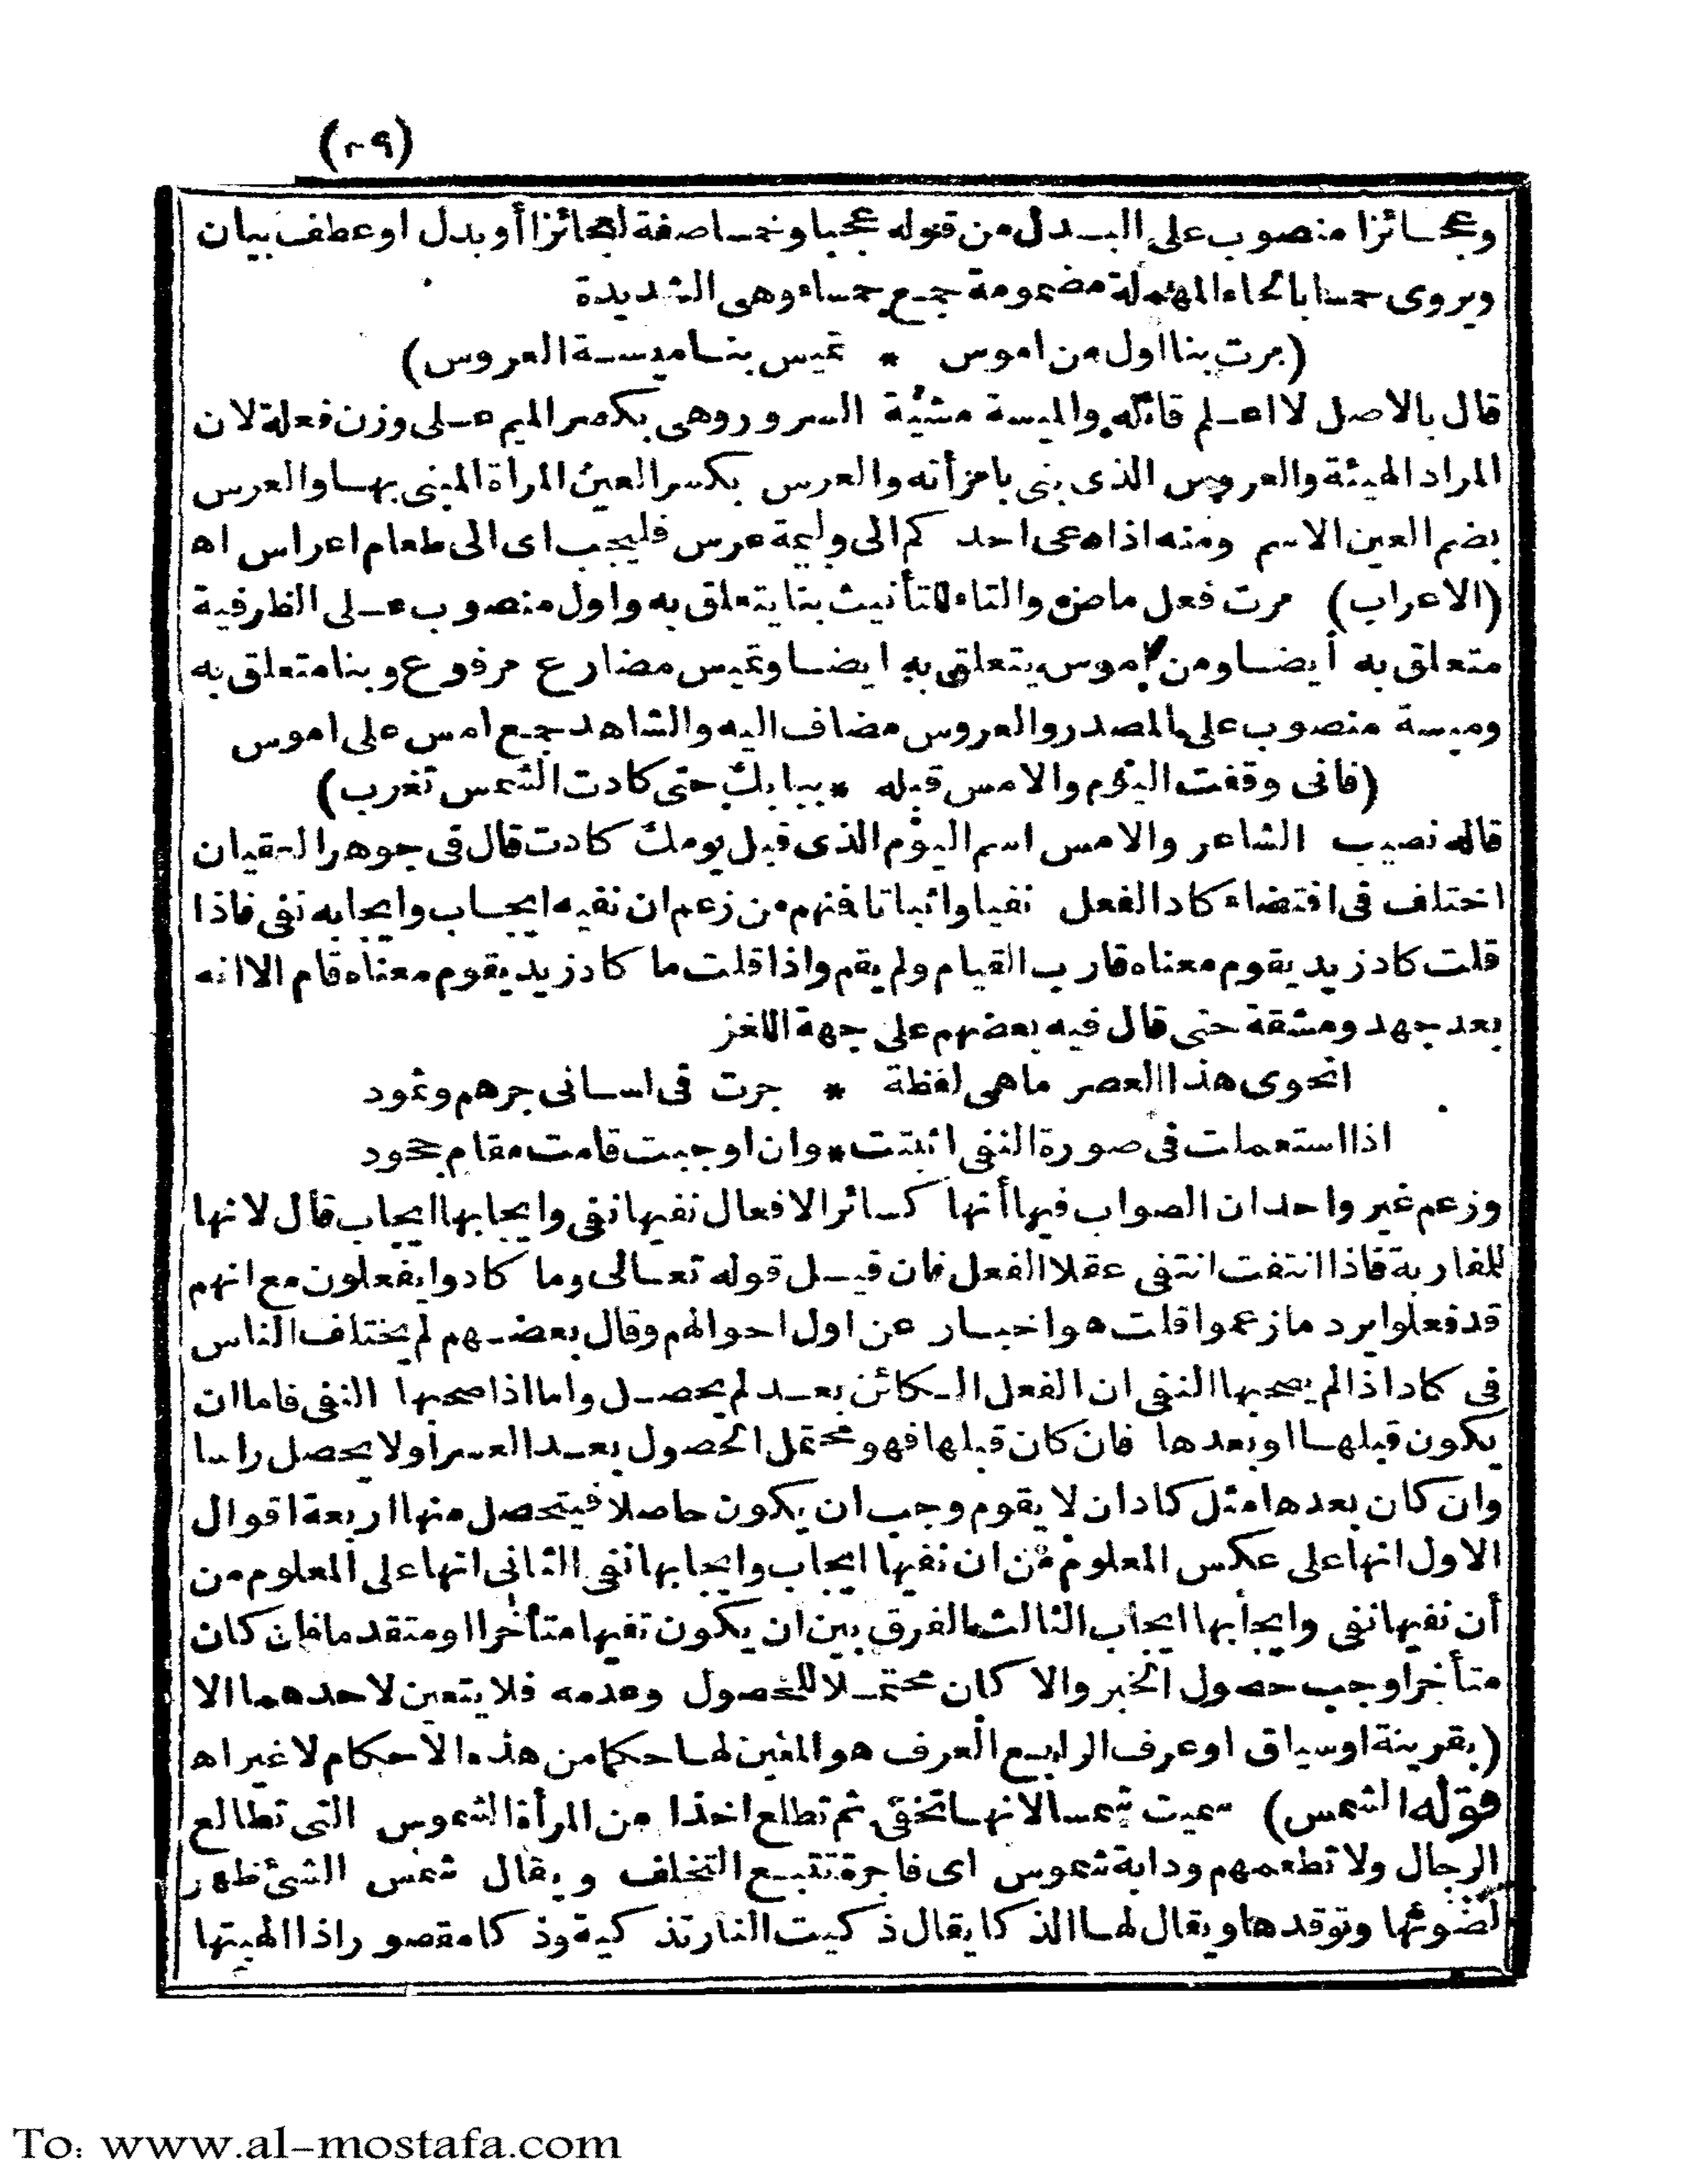 (٢٩)
وعجائزا منصوب على البدل من قوله عجبا وخمسا صفة لعجائزا أو بدل او عطف بيان
ويروى حمسا بالحاء المهملة مضمومة جمع حمساء وهى الشديدة
(مرت بنا اول من اموس * تميس بنا ميسة العروس)
قال بالاصل لا اعلم قائله والميسة مشية السرور وهى بكسر الميم على وزن فعلة لان
المراد الهيئة والعروس الذى بنى بامرأته والعرس بكسر العين المرأة المبنى بها والعرس
بضم العين الاسم ومنه اذا دعى احدكم الى وليمة عرس فليجب اى الى طعام اعراس اه
(الاعراب) مرت فعل ماض والتاء للتأنيث بنا يتعلق به واول منصوب على الظرفية
متعلق به أيضا ومن اموس يتعلق به ايضا وتميس مضارع مرفوع وبنا متعلق به
وميسة منصوب على المصدر والعروس مضاف اليه والشاهد جمع امس على اموس
(فانى وقفت اليوم والامس قبله * ببابك حتى كادت الشمس تغرب)
قاله نصيب الشاعر والامس اسم اليوم الذى قبل يومك كادت قال فى جوهر العقيان
اختلف فى اقتضاء كاد الفعل نفيا واثباتا فنهم من زعم ان نفيه ايجاب وايجابه نفى فاذا
قلت كاد زيد يقوم معناه قارب القيام ولم يقم واذا قلت ما كاد زيد يقوم معناه قام الا انه
بعد جهد ومشقة حتى قال فيه بعضهم على جهة اللغز
انحوى هذا العصر ما هى لفظة * جرت فى لسانى جرهم وثمود
اذا استعملت فى صورة النفى اثبتت * وان اوجبت قامت مقام جحود
وزعم غير واحد ان الصواب فيها أنها كسائر الافعال نفيها نفى وايجابها ايجاب قال لانها
للمقاربة فاذا انتفت انتفى عقلا الفعل فان قيل قوله تعالى وما كادوا يفعلون مع انهم
قد فعلوا يرد ما زعموا قلت هو اخبار عن اول احوالهم وقال بعضهم لم يختلف الناس
فى كاد اذا لم يصحبها النفى ان الفعل الكائن بعد لم يحصل واما اذا صحبها النفى فاما ان
يكون قبلها او بعدها فان كان قبلها فهو محتمل الحصول بعد العسر أو لا يحصل راسا
وان كان بعدها مثل كاد ان لا يقوم وجب ان يكون حاصلا فيتحصل منها اربعة اقوال
الاول انها على عكس المعلوم من ان نفيها ايجاب وايجابها نفى الثانى انها على المعلوم من
أن نفيها نفى وايجابها ايجاب الثالث الفرق بين ان يكون نفيها متأخرا او متقدما فان كان
متأخرا وجب حصول الخبر والا كان محتملا للحصول وعدمه فلا يتعين لاحدهما الا
(بقرينة او سياق او عرف الرابع العرف هو المعين لها حكما من هذه الاحكام لا غير اه
قوله الشمس) سميت شمسا لانها تخفى ثم تطلع اخذا من المرأة الشموس التى تطالع
الرجال ولا تطعمهم ودابة شموس اى فاجرة تتبع التخلف ويقال شمس الشئ ظهر
لضوئها وتوقدها ويقال لها الذكا يقال ذكيت النار تذكية وذكا مقصور اذا الهبتها
To: www.al-mostafa.com